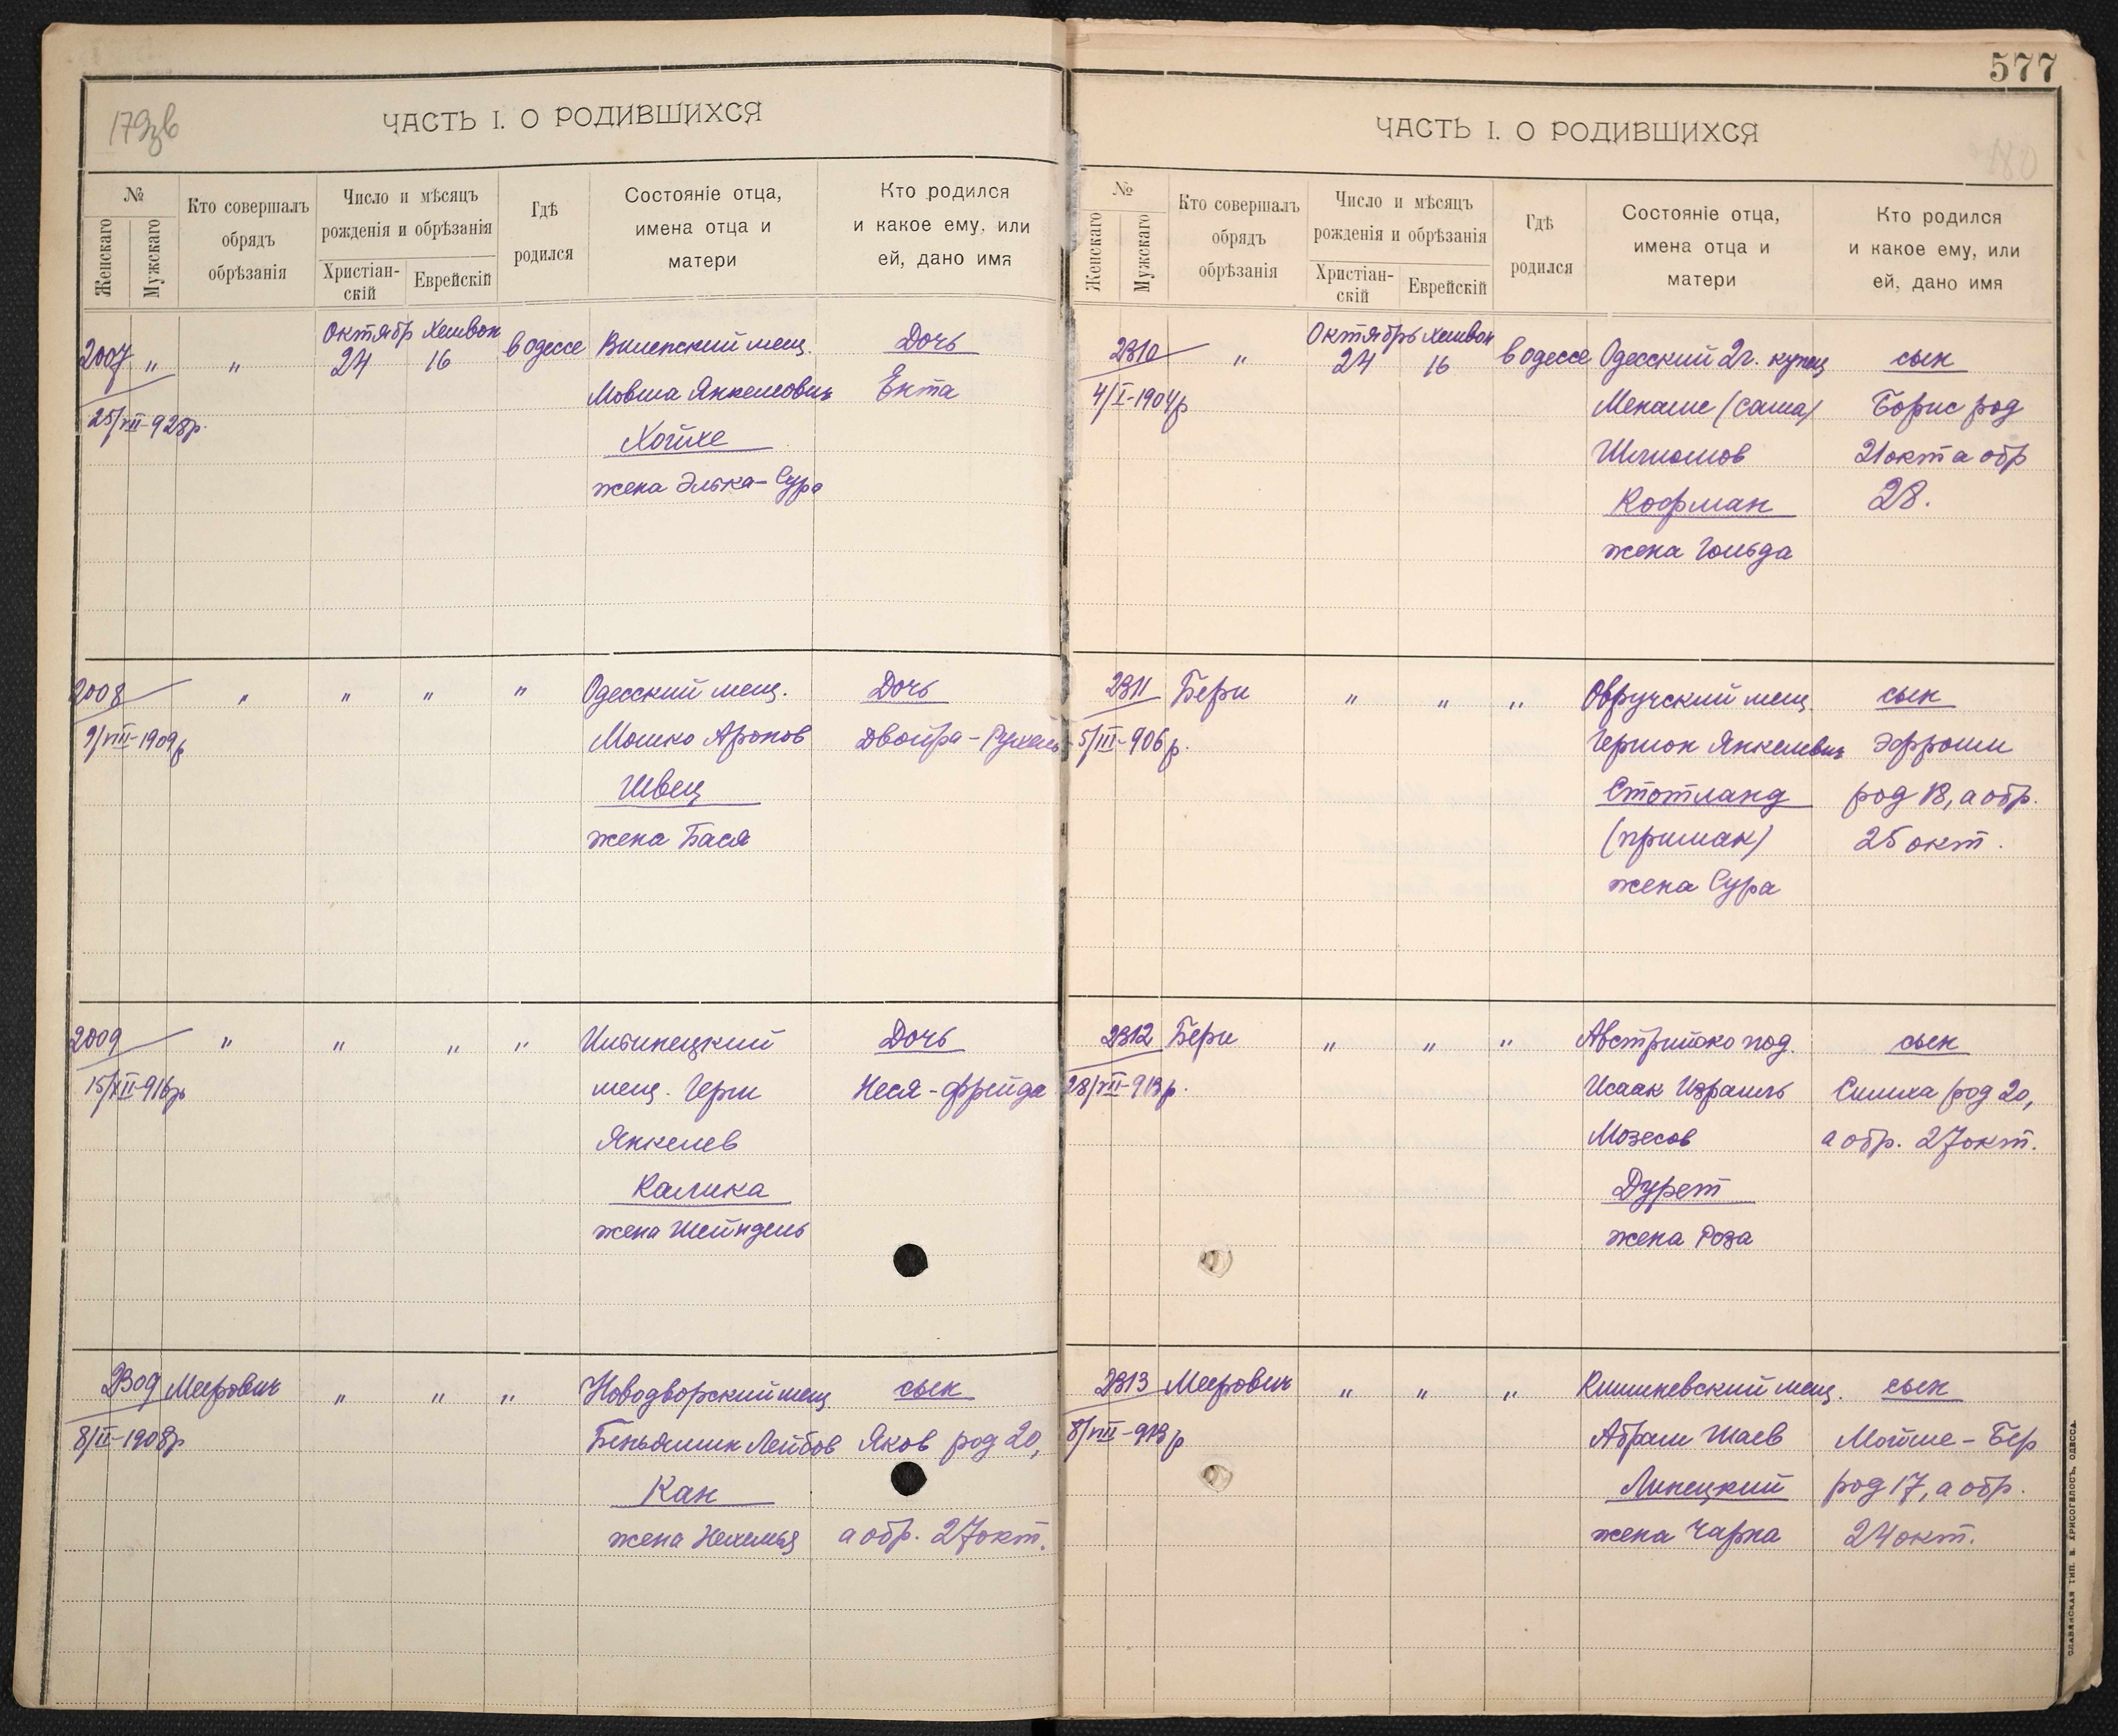 179зв
ЧАСТЬ I. О РОДИВШИХСЯ
№
Женскаго
Мужскаго
Кто совершалъ
обрядъ
обрѣзанія
Число и мѣсяцъ
рожденія и обрѣзанія
Христіан-
скій
Еврейскій
Гдѣ
родился
Состояніе отца,
имена отца и
матери
Кто родился
и какое ему, или
ей, дано имя
Октябр Хешвон
2007 " " 24 16 в одессе Виленский мещ. Дочь
25/VII-928р. Мовша Янкелович Ента
Хойхе
жена Элька-Сура
2008 " " " " Одесский мещ. Дочь
9/VIII-1909р Мошко Аронов Двойра-Рухель
Швец
жена Бася
2009 " " " " Ильинецкий Дочь
15/XII-916р мещ. Герш Неся-Фрейда
Янкелев
Калика
жена Шейндель
2309 Меерович " " " Новодворский мещ. сын
8/II-1908р Беньямин Лейбов Яков род 20,
Кан
жена Нехемья а обр. 27 окт.
577
180
ЧАСТЬ I. О РОДИВШИХСЯ
№
Женскаго
Мужскаго
Кто совершалъ
обрядъ
обрѣзанія
Число и мѣсяцъ
рожденія и обрѣзанія
Христіан-
скій
Еврейскій
Гдѣ
родился
Состояніе отца,
имена отца и
матери
Кто родился
и какое ему, или
ей, дано имя
Октябрь Хешвон
2310 " 24 16 в одессе Одесский 2г. купец сын
4/I-1904р Менаше (Саша) Борис род
Шлиомов 21 окт а обр
Кофман 28.
жена Гольда
2311 Бери " " " Овручский мещ. сын
5/III-906р. Гершон Янкелевич Эфроим
Стотланд род 18, а обр.
(примак) 25 окт.
жена Сура
2312 Бери " " " Австрийско под. сын
28/VII-913р. Исаак Израиль Симха род 20,
Мозесов а обр. 27 окт.
Дурст
жена Роза
2313 Меерович " " " Кишиневский мещ. сын
8/VIII-913р Абрам Шаев Мойше-Бер
Линецкий род 17, а обр.
жена Чарна 24 окт.
СЛАВЯНСКАЯ ТИП. Н. ХРИСОГЕЛОСЪ, ОДЕССА.